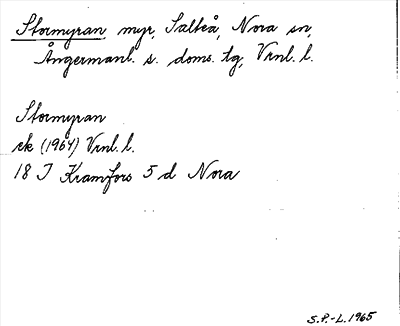 Stormyran, myr, Salteå, Nora sn,
Ångermanl. s. doms. tg, Vrnl. l.
Stormyran
ek (1964) Vrnl. l.
18 J Kramfors 5 d Nora
S.P.-L. 1965